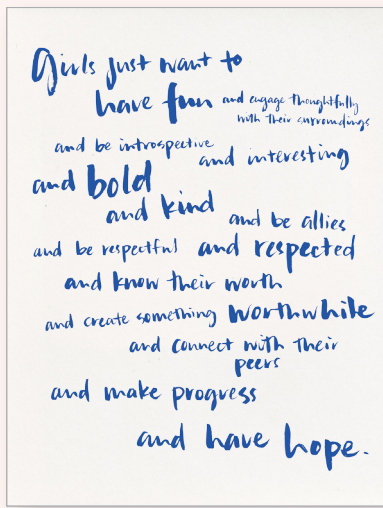 Girls just want to
have fun and engage thoughtfully
with their surroundings
and be introspective
and interesting
and bold
and kind
and be allies
and be respectful and respected
and know their worth
and create something worthwhile
and connect with their
peers
and make progress
and have hope.